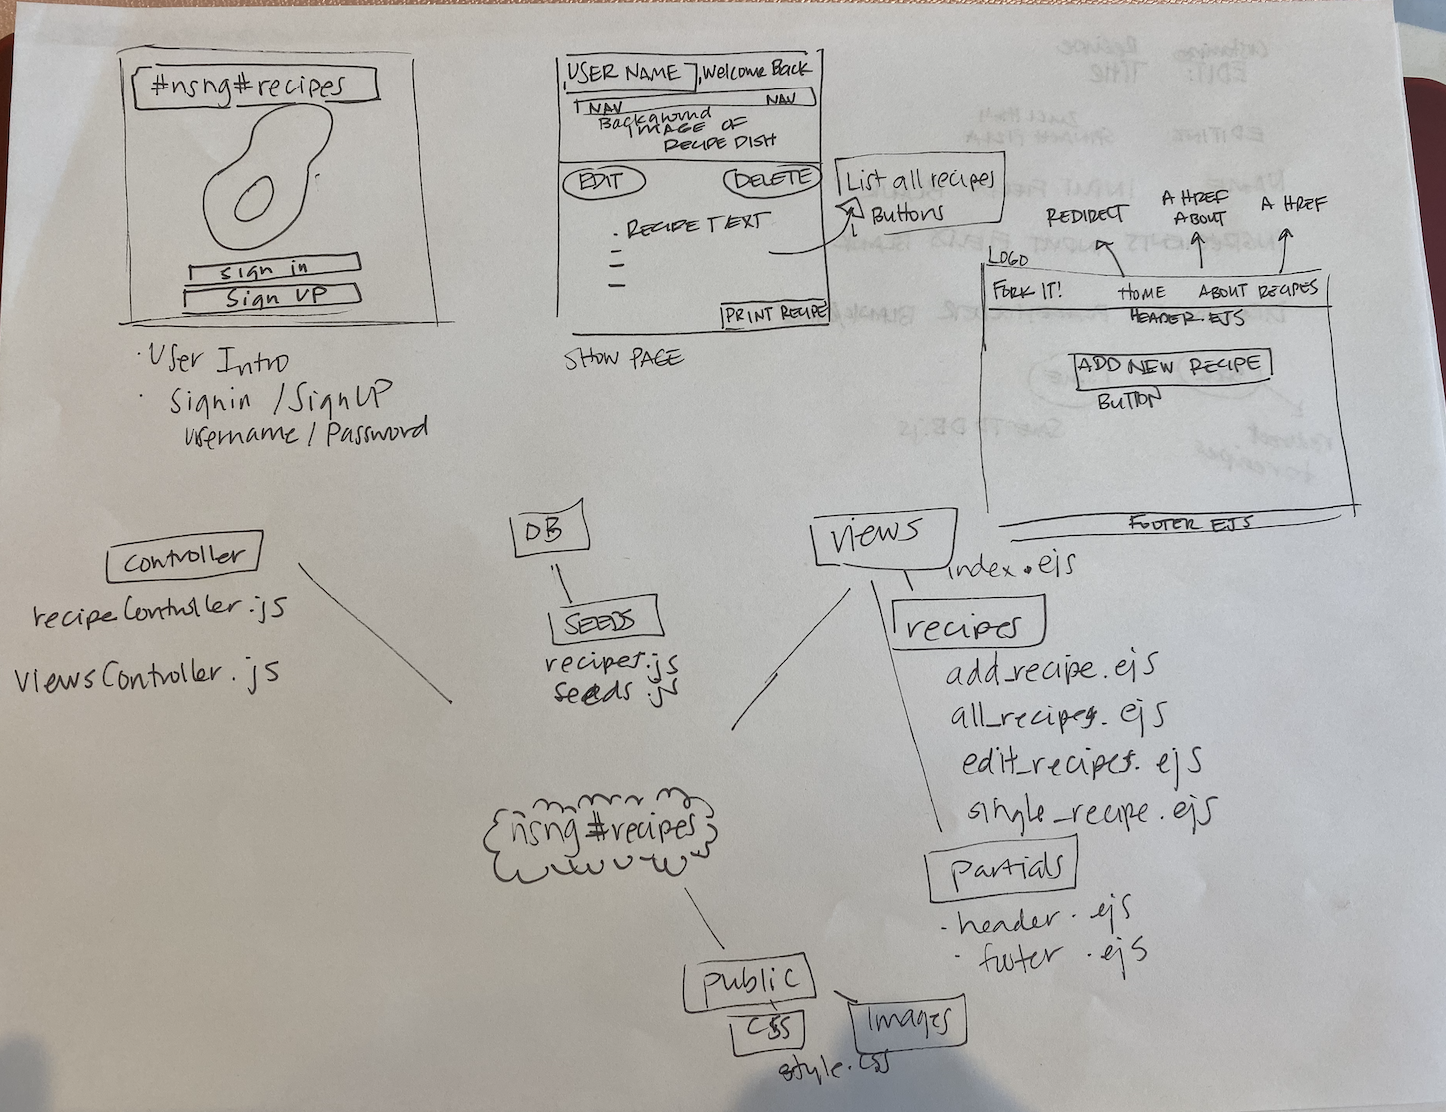 #nsng#recipes
sign in
Sign UP
· User Intro
· Signin / SignUP
username / Password
USER NAME, Welcome Back
NAV NAV
Background
IMAGE OF
RECIPE DISH
EDIT DELETE
. RECIPE TEXT
PRINT RECIPE
SHOW PAGE
List all recipes
Buttons
REDIRECT
A HREF
ABOUT
A HREF
LOGO
FORK IT! HOME ABOUT RECIPES
HEADER.EJS
ADD NEW RECIPE
BUTTON
FOOTER EJS
controller
recipeController.js
viewsController.js
DB
SEEDS
recipes.js
seeds.js
views
index.ejs
recipes
add_recipe.ejs
all_recipes.ejs
edit_recipes.ejs
single_recipe.ejs
partials
· header.ejs
· footer.ejs
nsng#recipes
public
CSS
style.css
Images